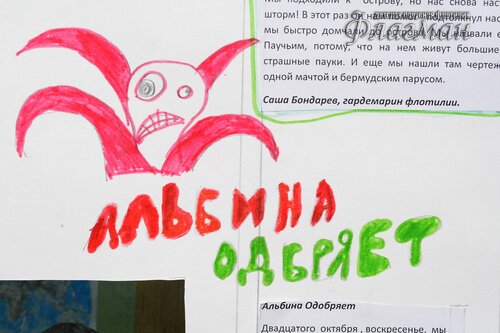 подходили к острову, но нас снова нас
шторм! В этот раз он нам помог - подтолкнул нас
мы быстро домчали до острова. Мы назвали е
Паучьим, потому, что на нем живут большие
страшные пауки. И еще мы нашли там чертеж
одной мачтой и бермудским парусом.
Саша Бондарев, гардемарин флотилии.
Флагман
АЛЬБИНА
ОДБРЯЕТ
Альбина Одобряет
Двадцатого октября , воскресенье, мы